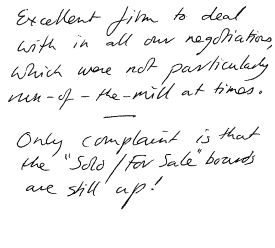 Excellent firm to deal
with in all our negotiations,
which were not particularly
run-of-the-mill at times.
Only complaint is that
the "Sold/For Sale" boards
are still up!